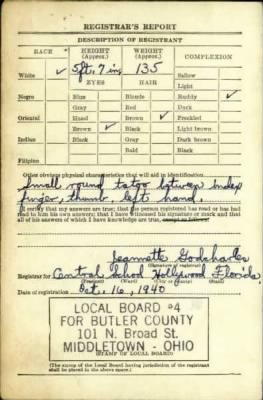 REGISTRAR'S REPORT
DESCRIPTION OF REGISTRANT
RACE HEIGHT (Approx.) WEIGHT (Approx.) COMPLEXION
5 ft. 7 in. 135
White ✓ EYES HAIR Sallow
Light
Negro Blue Blonde Ruddy ✓
Gray Red Dark
Oriental Hazel Brown ✓ Freckled
Brown ✓ Black Light brown
Indian Black Gray Dark brown
Bald Black
Filipino
Other obvious physical characteristics that will aid in identification
Small round tatoo between index
finger, thumb, left hand.
I certify that my answers are true; that the person registered has read or has had
read to him his own answers; that I have witnessed his signature or mark and that
all of his answers of which I have knowledge are true, except as follows:
Jeannette
(Signature of registrar)
Registrar for Central School Hollywood Florida
(Precinct) (Ward) (City or county) (State)
Date of registration Oct. 16, 1940
LOCAL BOARD #4
FOR BUTLER COUNTY
101 N. Broad St.
MIDDLETOWN - OHIO
(STAMP OF LOCAL BOARD)
(The stamp of the Local Board having jurisdiction of the registrant
shall be placed in the above space.)